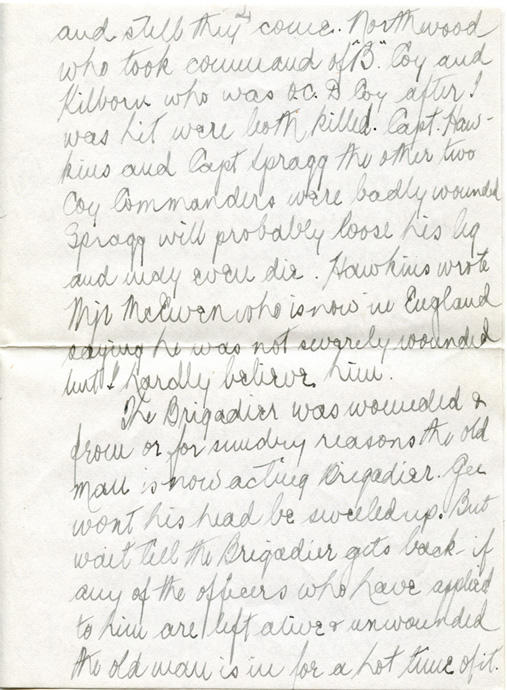 and still they come. Northwood
who took command of "B" Coy and
Kilborn who was O.C. D Coy after I
was hit were both killed. Capt. Haw-
kins and Capt Spragg the other two
Coy Commanders were badly wounded
Spragg will probably loose his leg
and may even die. Hawkins wrote
Mjr McEwen who is now in England
saying he was not severely wounded
but I hardly believe him.
The Brigadier was wounded &
from or for sundry reasons the old
man is now acting Brigadier. Gee
wont his head be swelled up. But
wait till the Brigadier gets back - if
any of the officers who have applied
to him are left alive & unwounded
the old man is in for a hot time of it.